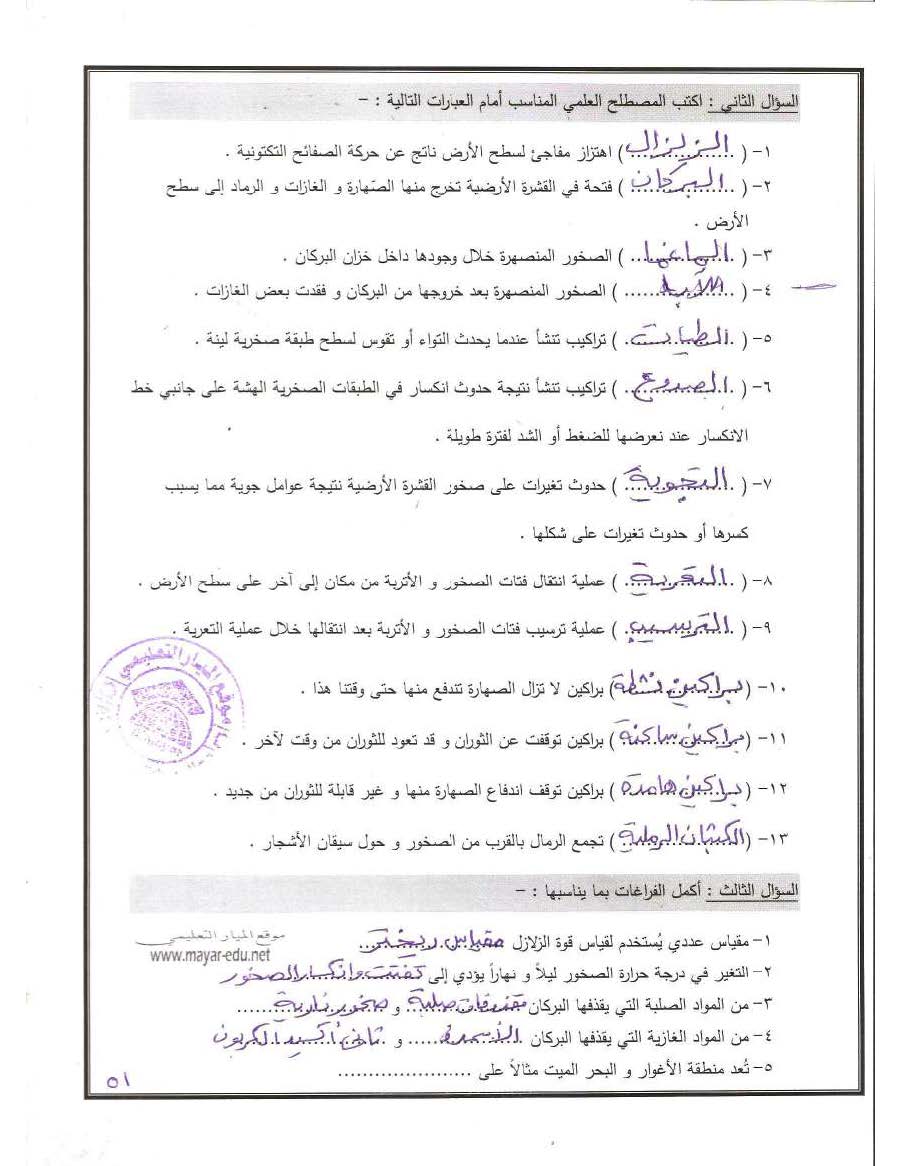 السؤال الثاني : اكتب المصطلح العلمي المناسب أمام العبارات التالية : -
١- ( الزلزال ) اهتزاز مفاجئ لسطح الأرض ناتج عن حركة الصفائح التكتونية .
٢- ( البركان ) فتحة في القشرة الأرضية تخرج منها الصّهارة و الغازات و الرماد إلى سطح
الأرض .
٣- ( الماغما ) الصخور المنصهرة خلال وجودها داخل خزان البركان .
٤- ( اللابا ) الصخور المنصهرة بعد خروجها من البركان و فقدت بعض الغازات .
٥- ( الطيات ) تراكيب تنشأ عندما يحدث التواء أو تقوس لسطح طبقة صخرية لينة .
٦- ( الصدوع ) تراكيب تنشأ نتيجة حدوث انكسار في الطبقات الصخرية الهشة على جانبي خط
الانكسار عند نعرضها للضغط أو الشد لفترة طويلة .
٧- ( التجوية ) حدوث تغيرات على صخور القشرة الأرضية نتيجة عوامل جوية مما يسبب
كسرها أو حدوث تغيرات على شكلها .
٨- ( التعرية ) عملية انتقال فتات الصخور و الأتربة من مكان إلى آخر على سطح الأرض .
٩- ( الترسيب ) عملية ترسيب فتات الصخور و الأتربة بعد انتقالها خلال عملية التعرية .
١٠- ( براكين نشطة ) براكين لا تزال الصهارة تندفع منها حتى وقتنا هذا .
١١- ( براكين ساكنة ) براكين توقفت عن الثوران و قد تعود للثوران من وقت لآخر .
١٢- ( براكين هامدة ) براكين توقف اندفاع الصهارة منها و غير قابلة للثوران من جديد .
١٣- ( الكثبان الرملية ) تجمع الرمال بالقرب من الصخور و حول سيقان الأشجار .
موقع الميار التعليمي
السؤال الثالث : أكمل الفراغات بما يناسبها : -
١- مقياس عددي يُستخدم لقياس قوة الزلازل مقياس ريختر
موقع الميار التعليمي
www.mayar-edu.net
٢- التغير في درجة حرارة الصخور ليلاً و نهاراً يؤدي إلى تفتت وانكسار الصخور
٣- من المواد الصلبة التي يقذفها البركان مقذوفات صلبة و صخور نارية ..........
٤- من المواد الغازية التي يقذفها البركان و ثاني أكسيد الكربون
٥- تُعد منطقة الأغوار و البحر الميت مثالاً على ......................
٥١